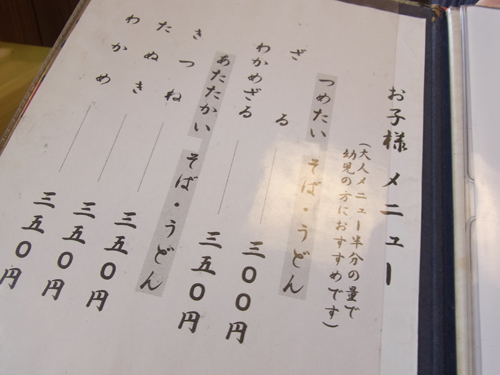 お子様 メニュー
(大人メニュー半分の量で
幼児の方におすすめです)
つめたい そば・うどん
ざる 三〇〇円
わかめざる 三五〇円
あたたかい そば・うどん
きつね 三五〇円
たぬき 三五〇円
わかめ 三五〇円